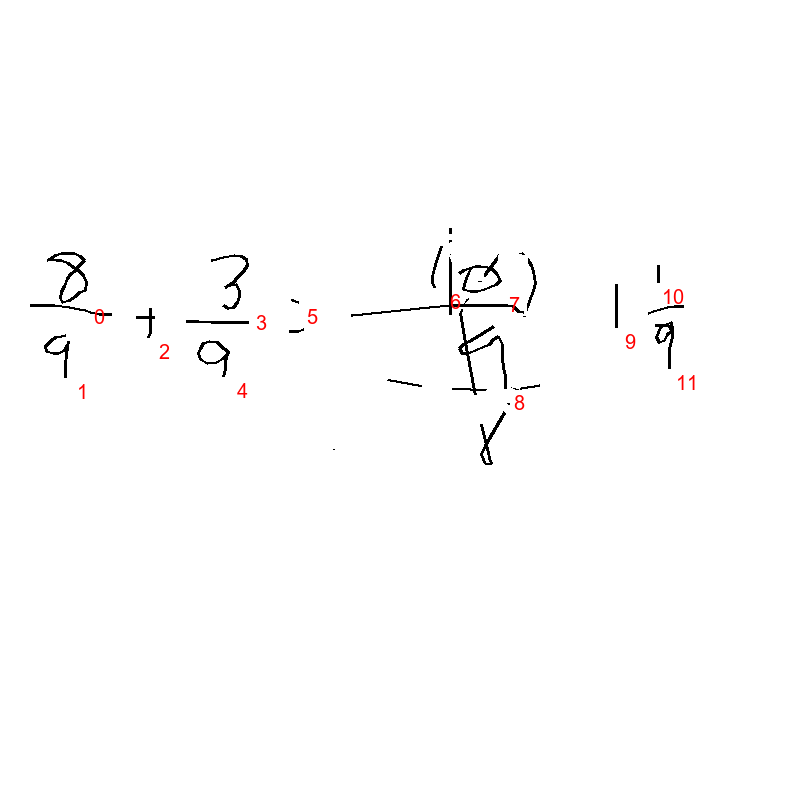 8/9 + 3/9 = 10/9 1 1/9
0 1 2 3 4 5 6 7 8 9 10 11